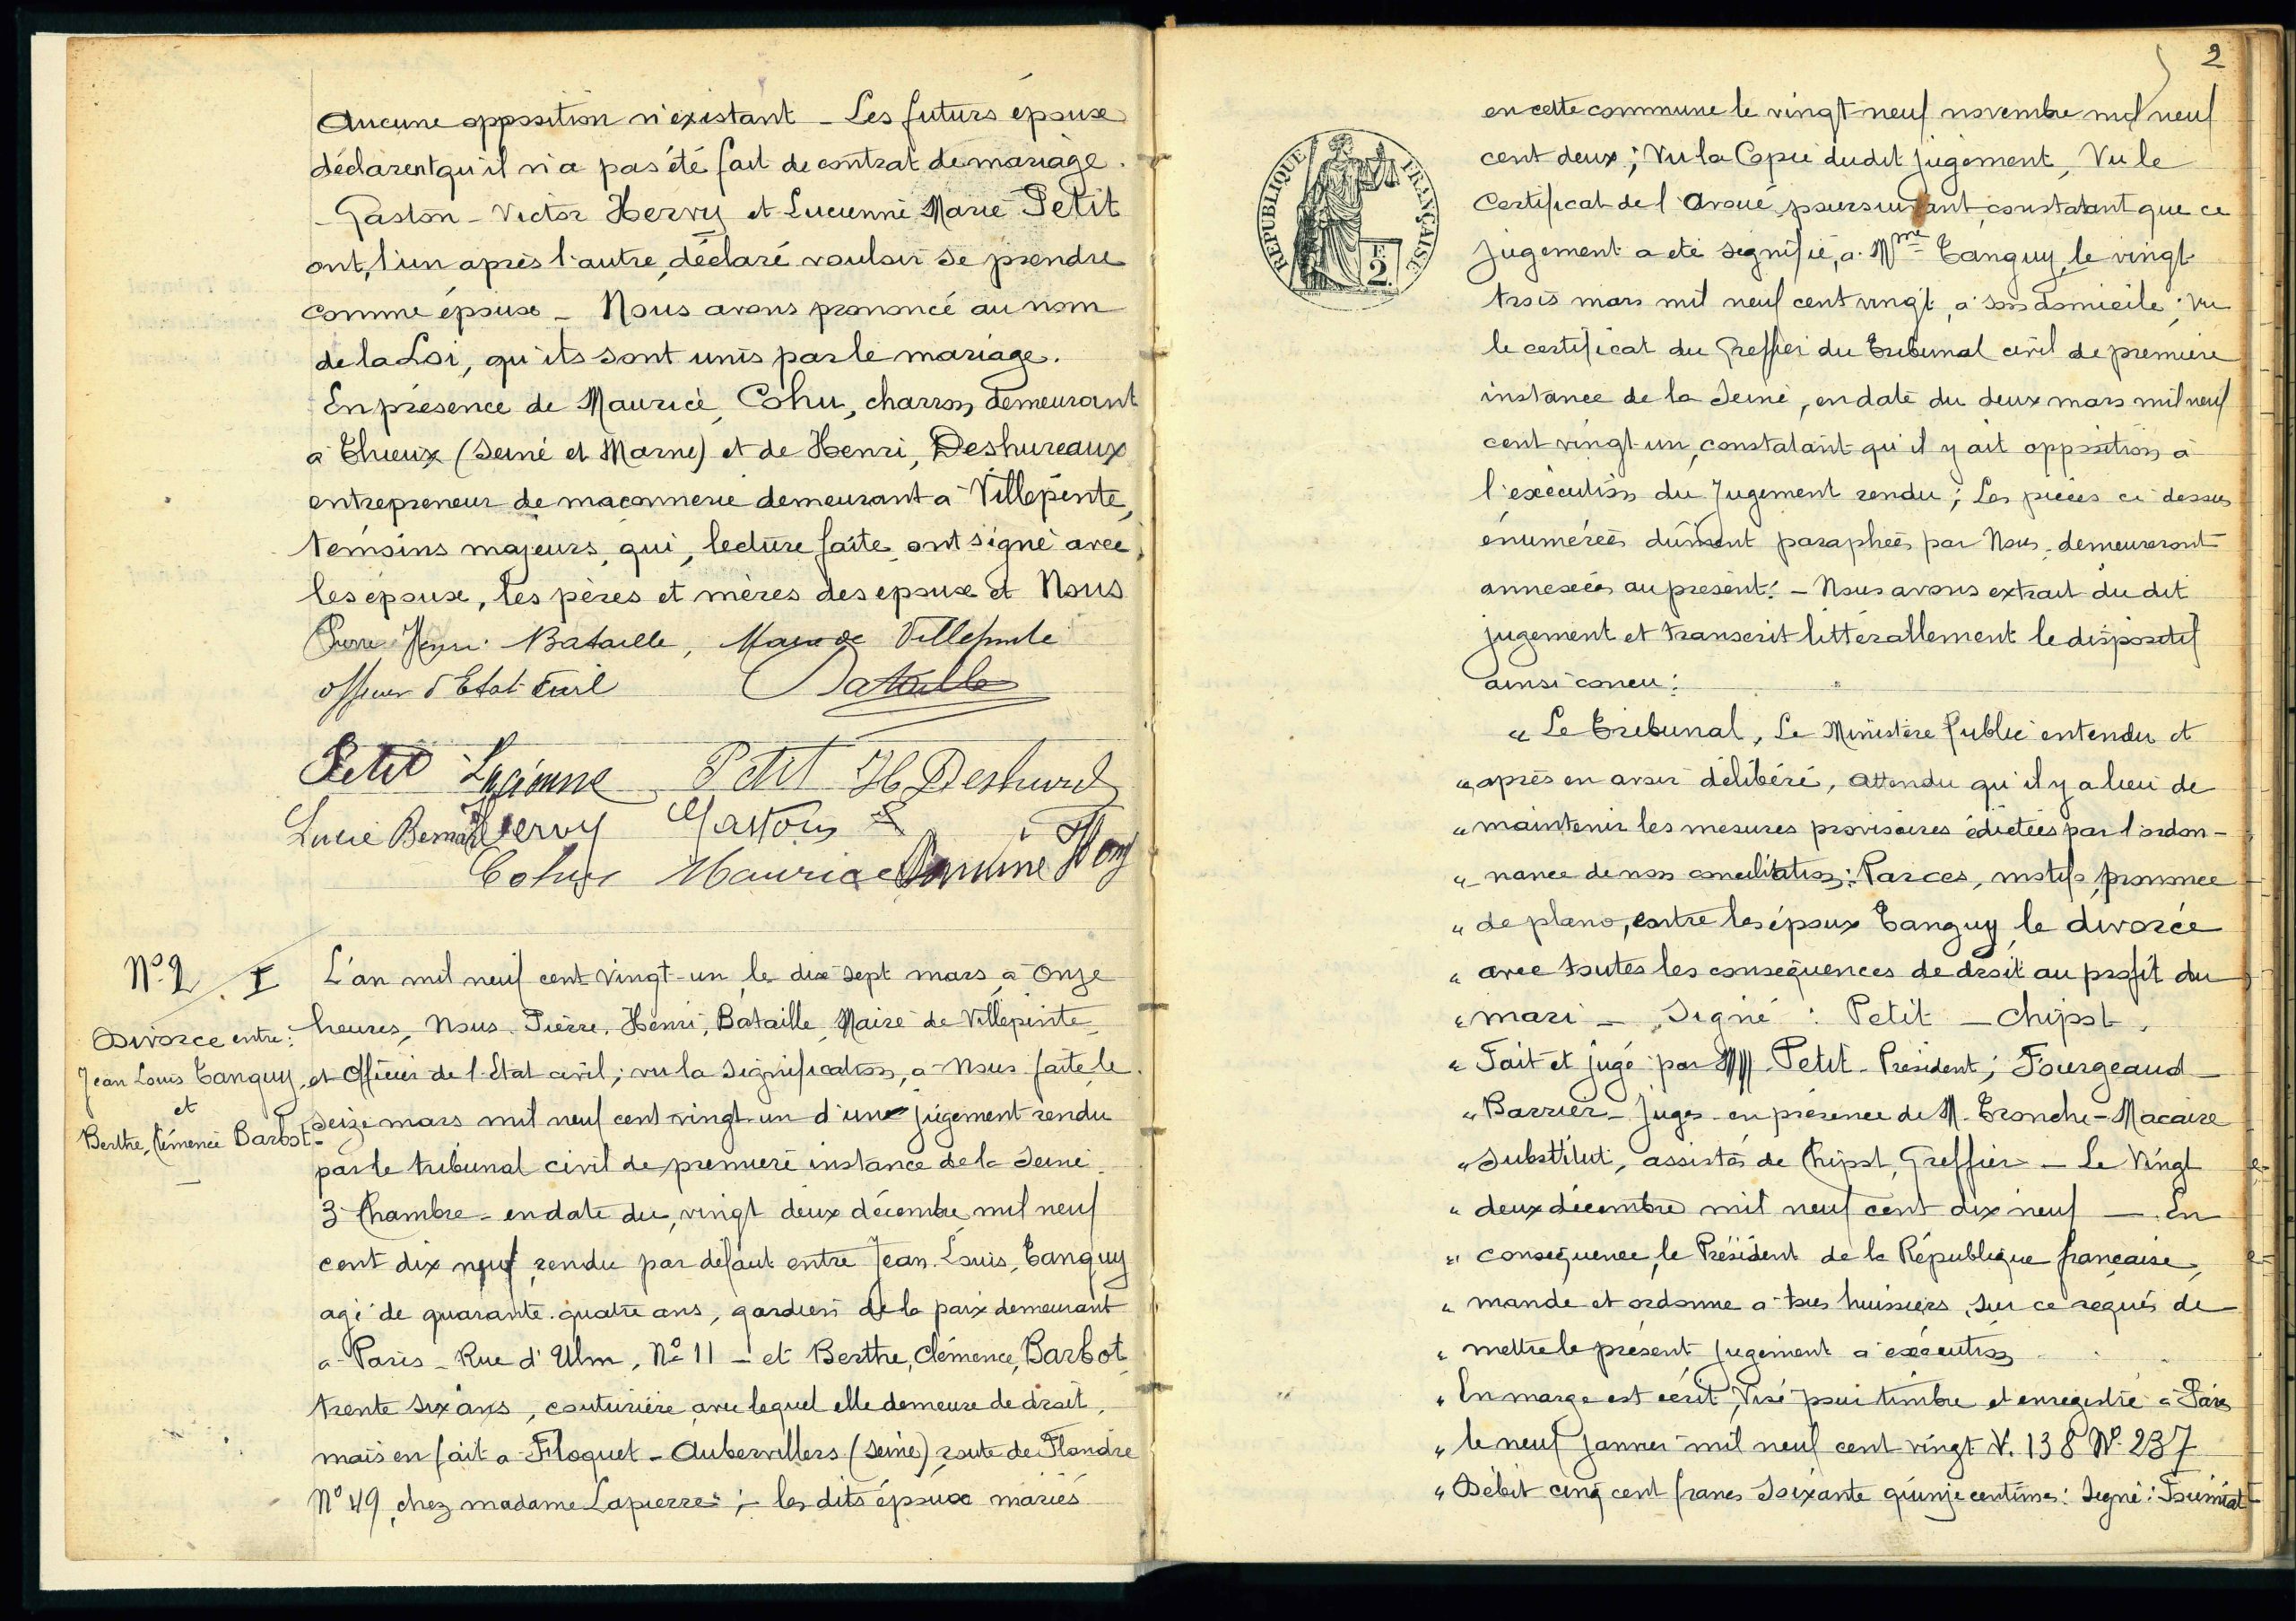 Aucune opposition n'existant _ Les futurs époux
déclarent qu'il n'a pas été fait de contrat de mariage.
_ Gaston _ Victor Hervy et Lucienne Marie Petit
ont, l'un après l'autre, déclaré vouloir se prendre
comme époux _ Nous avons prononcé au nom
de la Loi, qu'ils sont unis par le mariage.
En présence de Maurice, Cohu, charron, demeurant
à Thieux (Seine et Marne) et de Henri, Deshureaux
entrepreneur de maçonnerie demeurant à Villepinte,
témoins majeurs, qui, lecture faite, ont signé avec,
les époux, les pères et mères des époux et Nous
Pierre Henri Bataille, Maire de Villepinte
officier d'Etat Civil Bataille
Petit Lucienne Petit H Deshure
Lucie Bernard Hervy Gaston
Cohu Maurice
N° 2 I
Divorce entre:
Jean Louis Tanguy
et
Berthe, Clémence Barbot.
L'an mil neuf cent vingt-un le dix sept mars à onze
heures, Nous Pierre, Henri, Bataille, Maire de Villepinte
et Officier de l'Etat civil; vu la signification, à Nous faite le
seize mars mil neuf cent vingt un d'une jugement rendu
par le tribunal civil de première instance de la Seine
3 Chambre _ en date du, vingt deux décembre mil neuf
cent dix neuf rendu par défaut entre Jean Louis, Tanguy
agé de quarante quatre ans, gardien de la paix demeurant
à Paris _ Rue d'Ulm, N° 11 _ et Berthe, Clémence, Barbot
trente six ans, couturière avec lequel elle demeure de droit,
mais en fait à Floquet _ Aubervillers (Seine) route de Flandre
N° 49, chez madame Lapierre; _ les dits époux mariés
2
REPUBLIQUE FRANÇAISE
F.
2.
en cette commune le vingt neuf novembre mil neuf
cent deux; Vu la Copie dudit jugement, Vu le
Certificat de l'Avoué poursuivant, constatant que ce
jugement a été signifié, à Mme Tanguy, le vingt
trois mars mil neuf cent vingt, à son domicile; Vu
le certificat du Greffier du Tribunal civil de première
instance de la Seine, en date du deux mars mil neuf
cent vingt un, constatant qu'il y ait opposition à
l'exécution du Jugement rendu; Les pièces ci dessus
énumérées dûment paraphées par Nous, demeureront
annexées au présent: _ Nous avons extrait du dit
jugement et transcrit littérallement le dispositif
ainsi concu:
" Le Tribunal, Le Ministère Public entendu et
" après en avoir délibéré, attendu qu'il y a lieu de
" maintenir les mesures provisoires édictées par l'ordon-
" nance de non conciliation: Par ces, motifs, prononce
" de plano, entre les époux Tanguy le divorce
" avec toutes les conséquences de droit au profit du
" mari _ Signé: Petit _ Chipot.
" Fait et jugé par MM Petit _ Président; Fourgeaud _
" Barrier _ Juges en présence de M. Tronche-Macaire
" substitut, assistés de Chipot, Greffier _ Le Vingt
" deux décembre mil neuf cent dix neuf _ En
" conséquence, le Président de la République française,
" mande et ordonne à tous huissiers, sur ce requis de
" mettre le présent jugement à exécution
" En marge est écrit, Visé pour timbre et enregistré à Paris
" le neuf janvier mil neuf cent vingt V. 138 N° 237
" Débit cinq cent francs soixante quinze centimes: Signé: